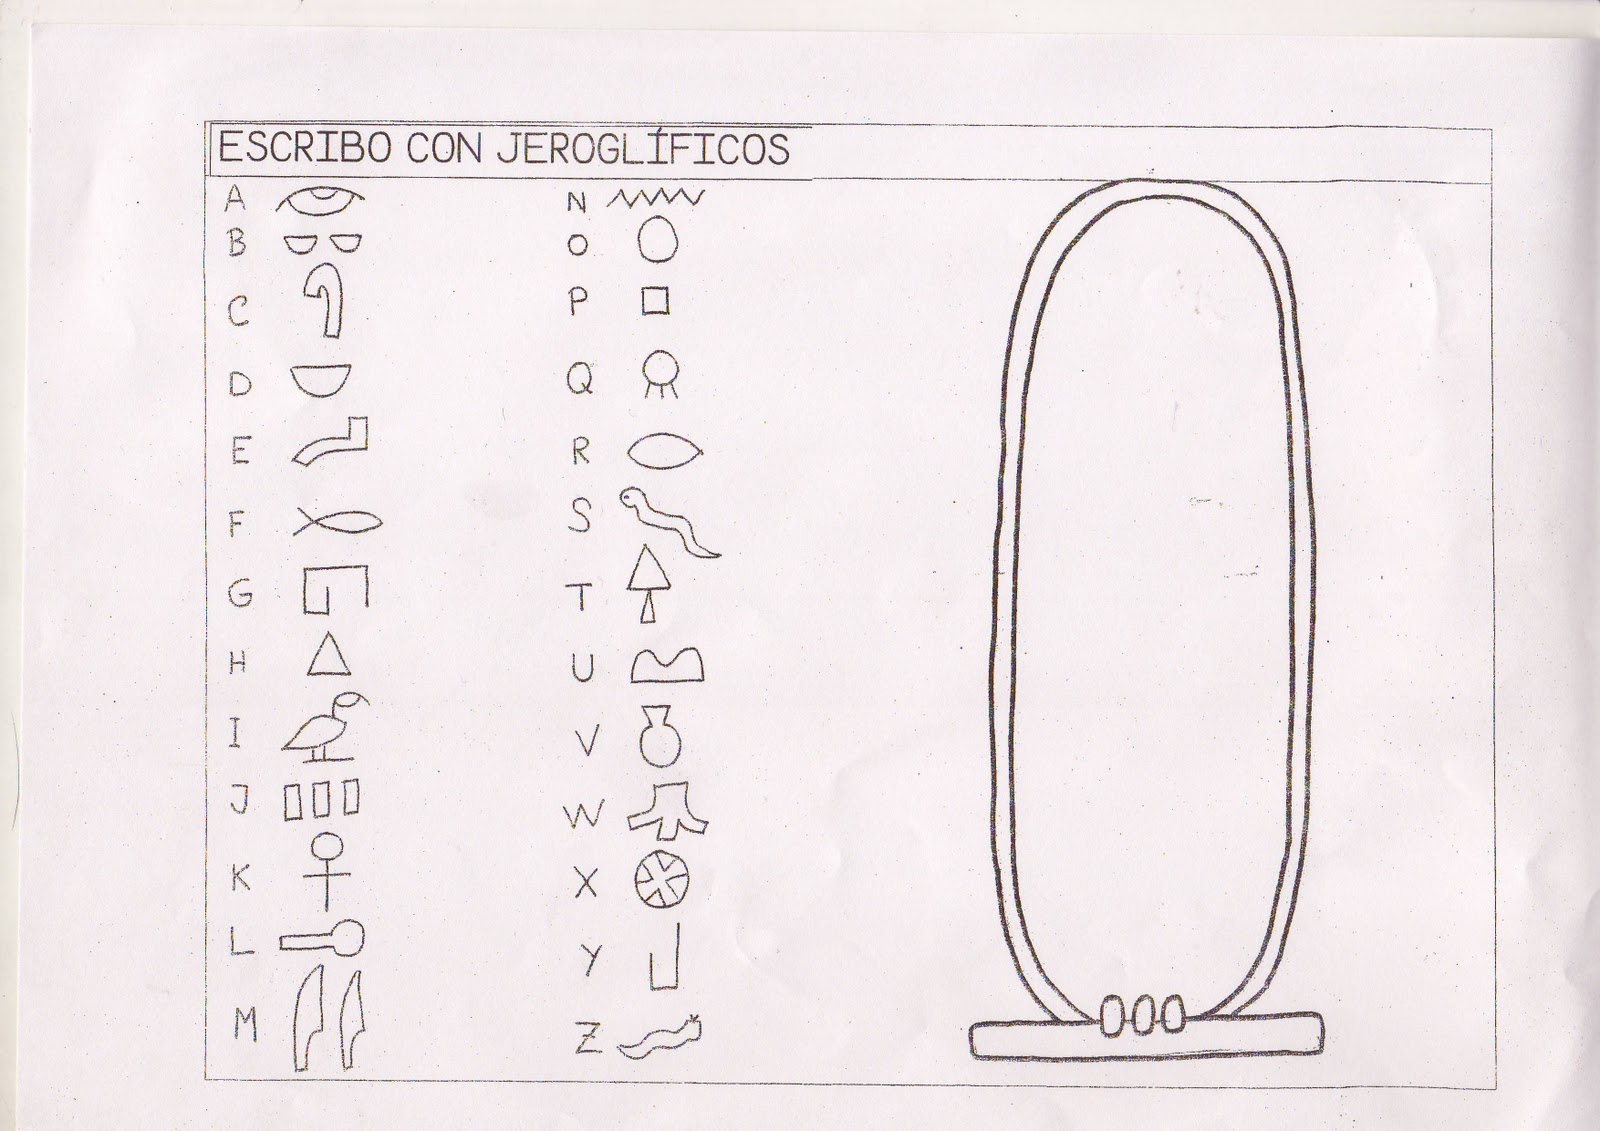 ESCRIBO CON JEROGLÍFICOS
A
B
C
D
E
F
G
H
I
J
K
L
M
N
O
P
Q
R
S
T
U
V
W
X
Y
Z